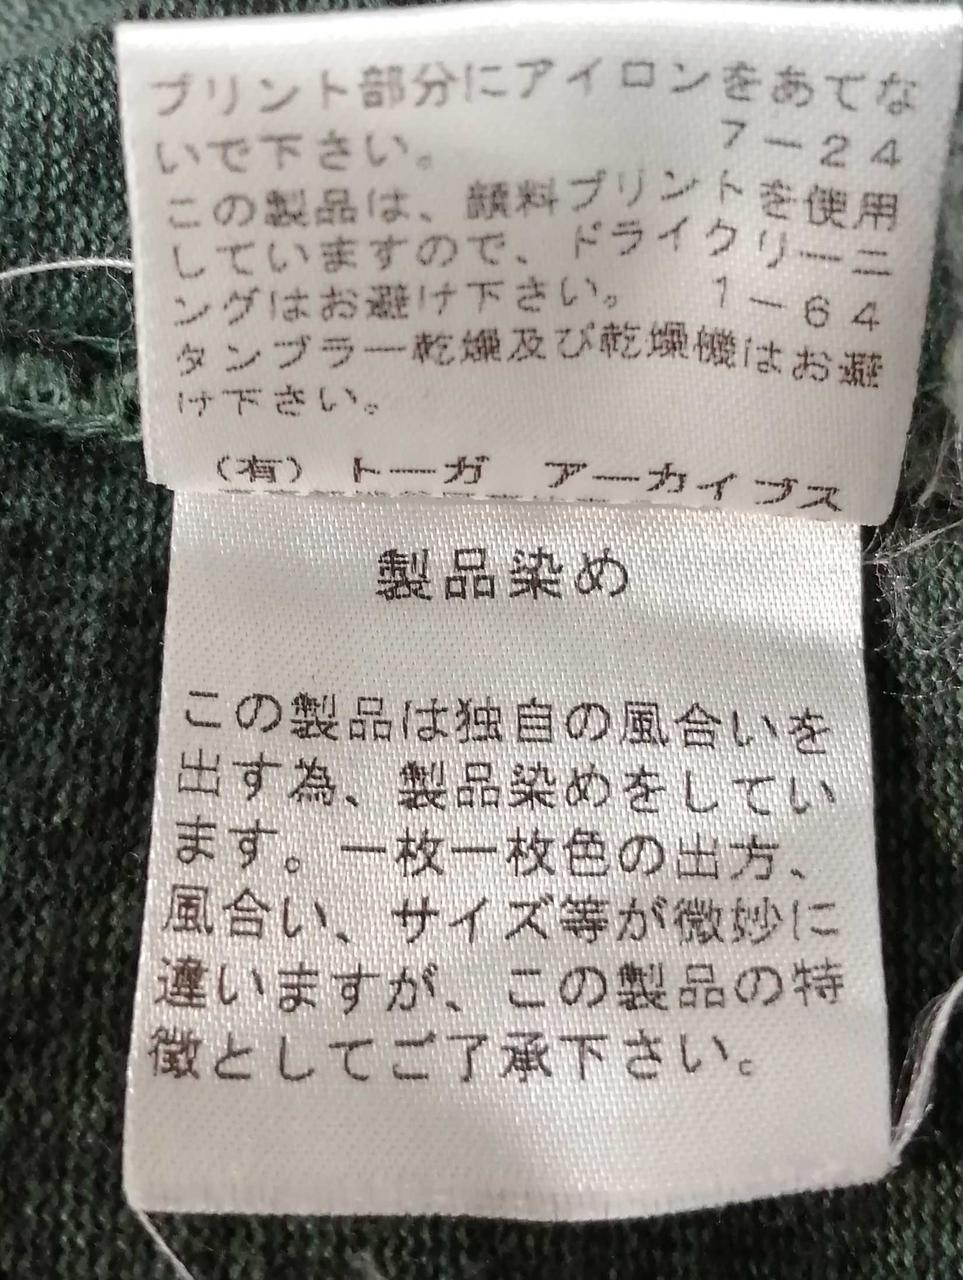 プリント部分にアイロンをあてな
いで下さい。 7－24
この製品は、顔料プリントを使用
していますので、ドライクリーニ
ングはお避け下さい。 1－64
タンブラー乾燥及び乾燥機はお避
け下さい。
（有） トーガ アーカイブス
製品染め
この製品は独自の風合いを
出す為、製品染めをしてい
ます。一枚一枚色の出方、
風合い、サイズ等が微妙に
違いますが、この製品の特
徴としてご了承下さい。